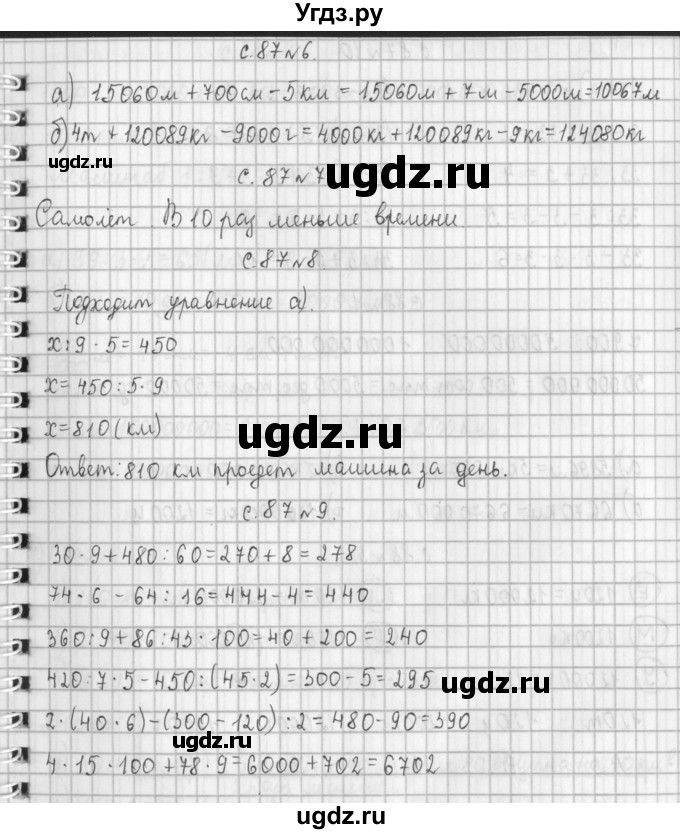 Угдз.ру
с.87 №6.
а) 15060м + 700см - 5км = 15060м + 7м - 5000м = 10067м
б) 4т + 120089кг - 9000г = 4000кг + 120089кг - 9кг = 124080кг
ugdz.ru
ugdz.ru
с. 87 №7
Самолёт. В 10 раз меньше времени
с.87 №8.
Подходит уравнение а).
х : 9 · 5 = 450
х = 450 : 5 · 9
х = 810 (км)
ugdz.ru
Ответ: 810 км проедет машина за день.
с.87 №9.
30 · 9 + 480 : 60 = 270 + 8 = 278
74 · 6 - 64 : 16 = 444 - 4 = 440
360 : 9 + 86 : 43 · 100 = 40 + 200 = 240
420 : 7 · 5 - 450 : (45 · 2) = 300 - 5 = 295
ugdz.ru
2 · (40 · 6) - (300 - 120) : 2 = 480 - 90 = 390
ugdz.ru
4 · 15 · 100 + 78 · 9 = 6000 + 702 = 6702
ugdz.ru